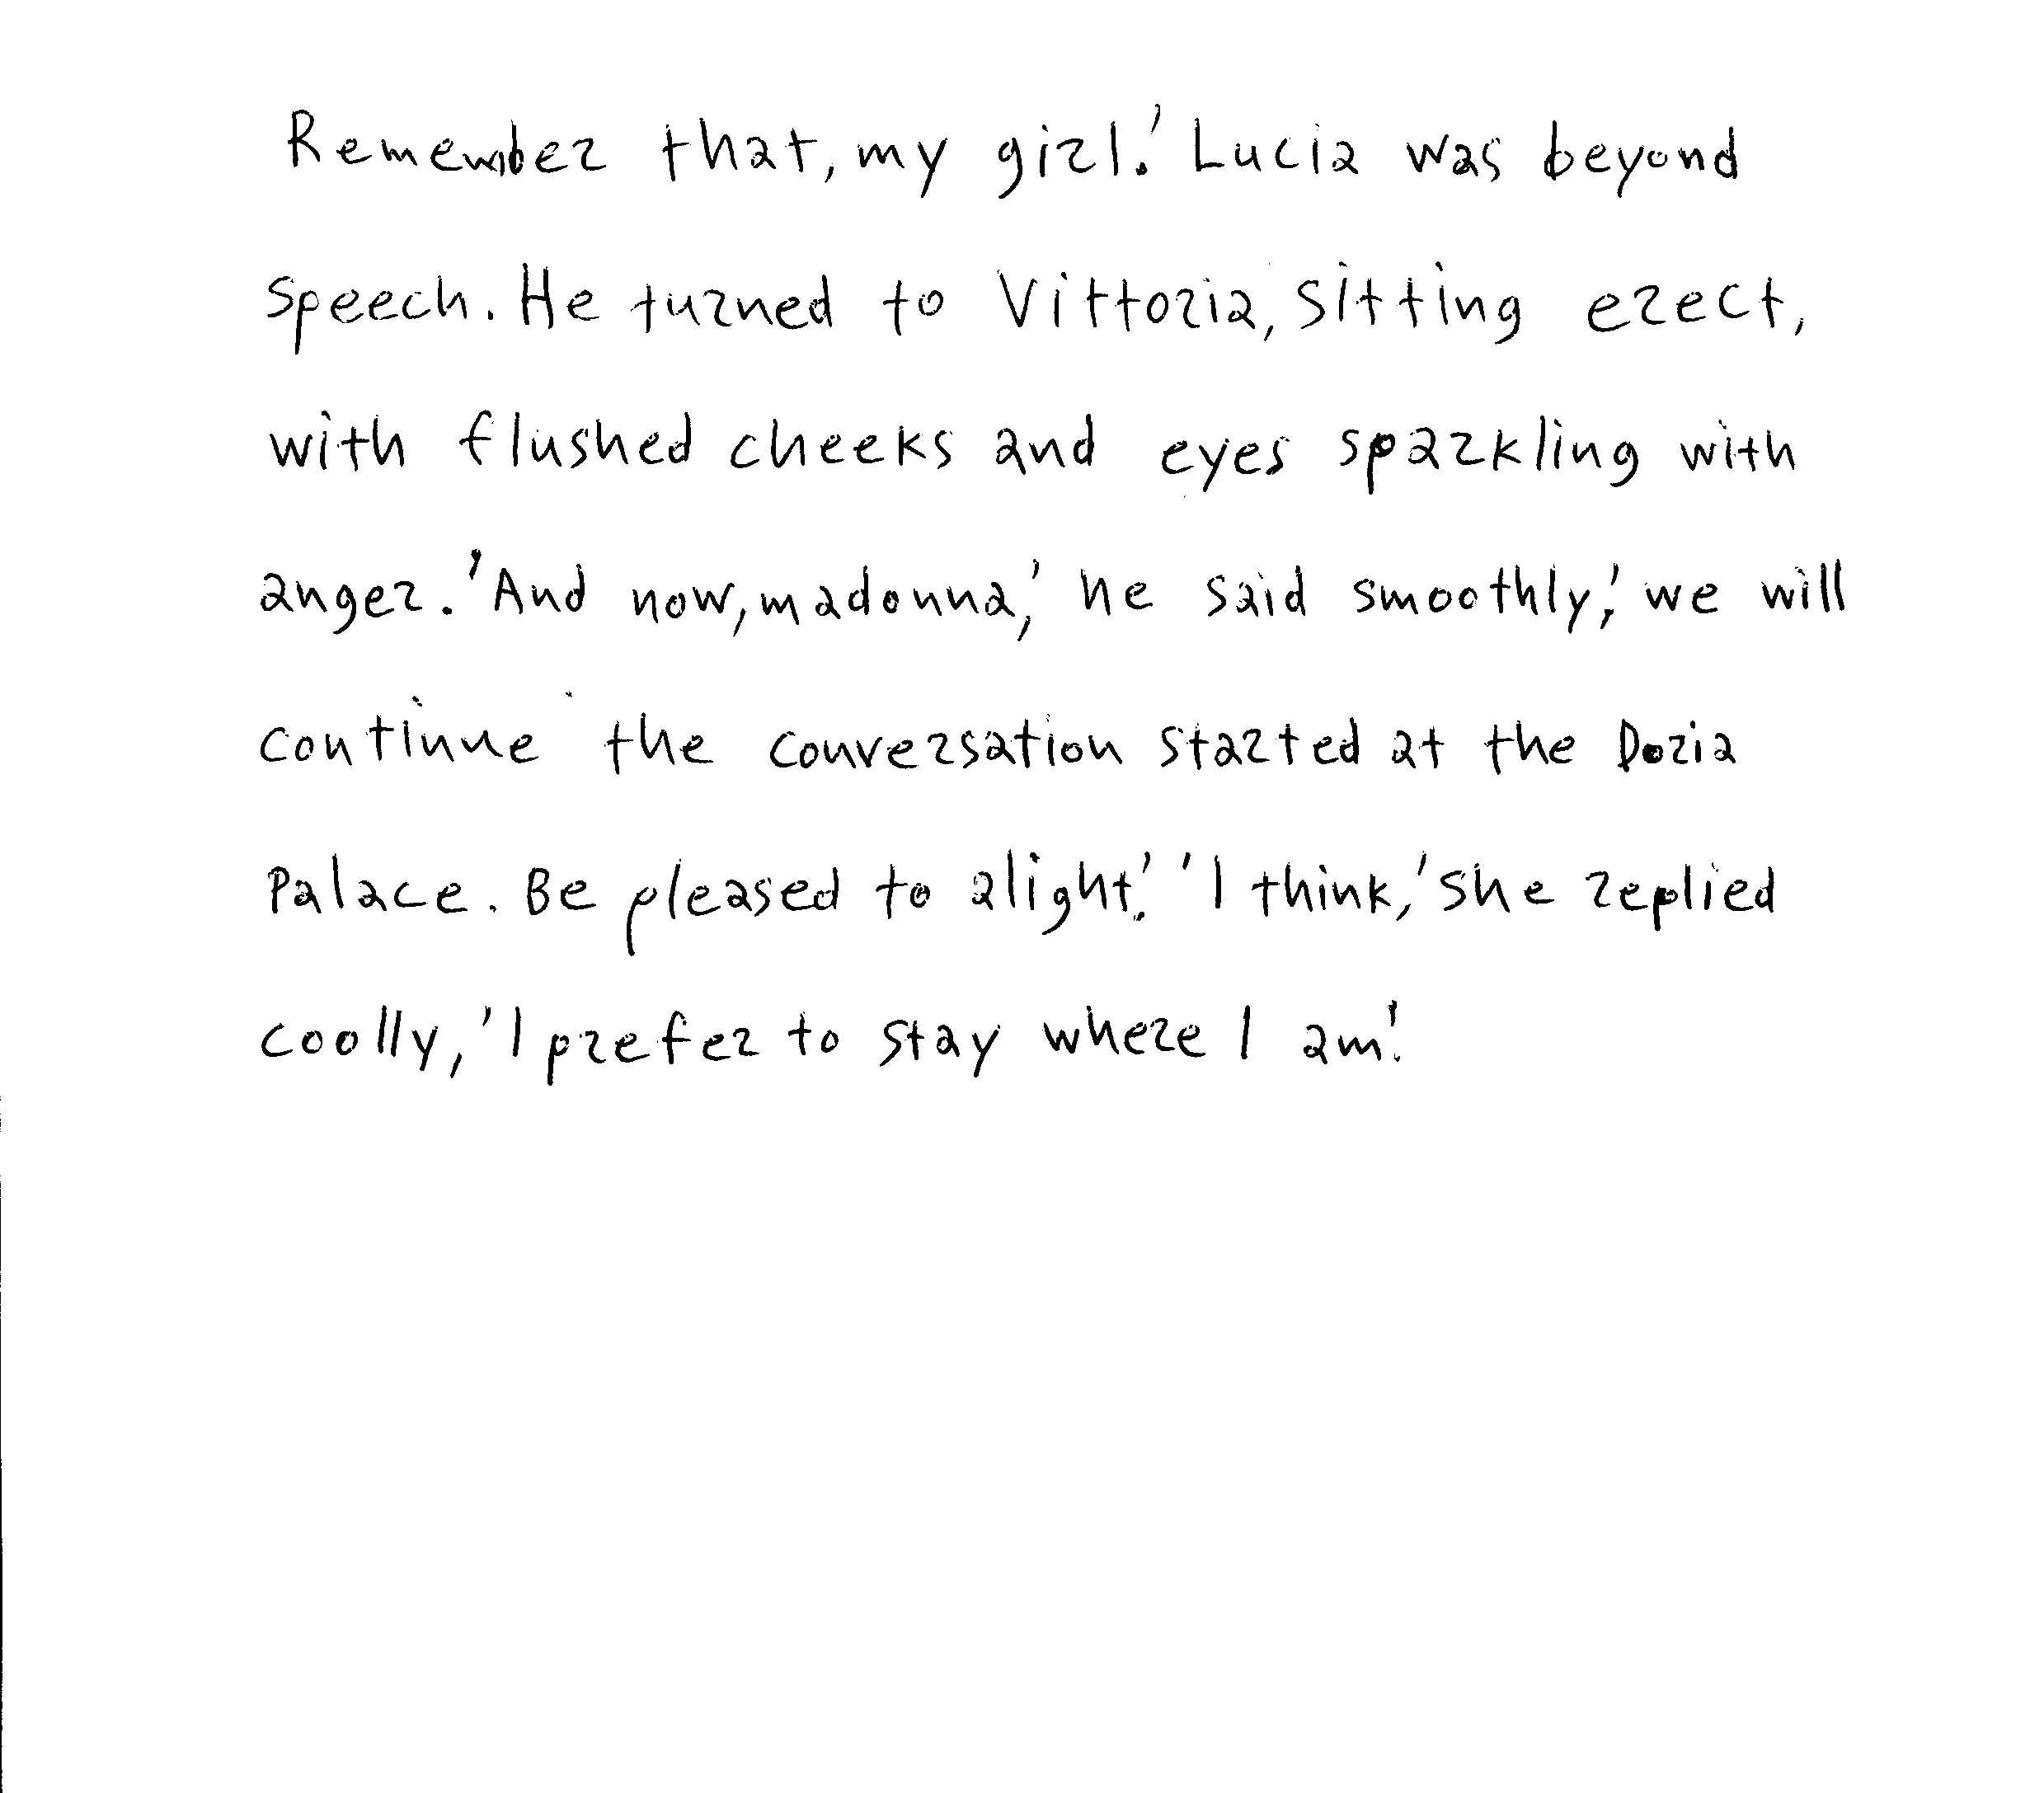 Remember that, my girl.' Lucia was beyond
speech. He turned to Vittoria, sitting erect,
with flushed cheeks and eyes sparkling with
anger. 'And now, madonna,' he said smoothly, 'we will
continue the conversation started at the Doria
Palace. Be pleased to alight.' 'I think,' she replied
coolly, 'I prefer to stay where I am.'